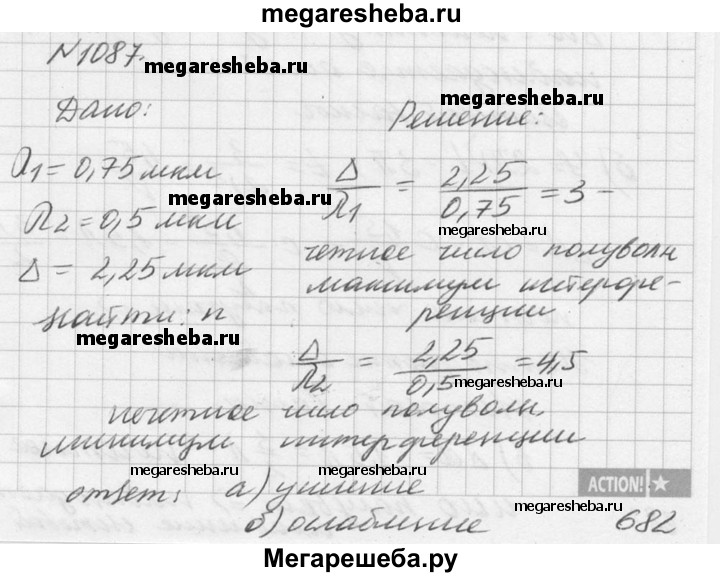 megaresheba.ru
N1087.
megaresheba.ru
Дано:
megaresheba.ru
Решение:
λ1 = 0,75 мкм
Δ/λ1 = 2,25/0,75 = 3 -
megaresheba.ru
λ2 = 0,5 мкм
megaresheba.ru
Δ = 2,25 мкм
четное число полуволн
максимум интерфе-
найти: n
ренции
megaresheba.ru
Δ/λ2 = 2,25/0,5 = 4,5
megaresheba.ru
нечетное число полуволн,
минимум интерференции
megaresheba.ru
megaresheba.ru
ACTION!
ответ: а) усиление
б) ослабление
megaresheba.ru
682
Мегарешеба.ру